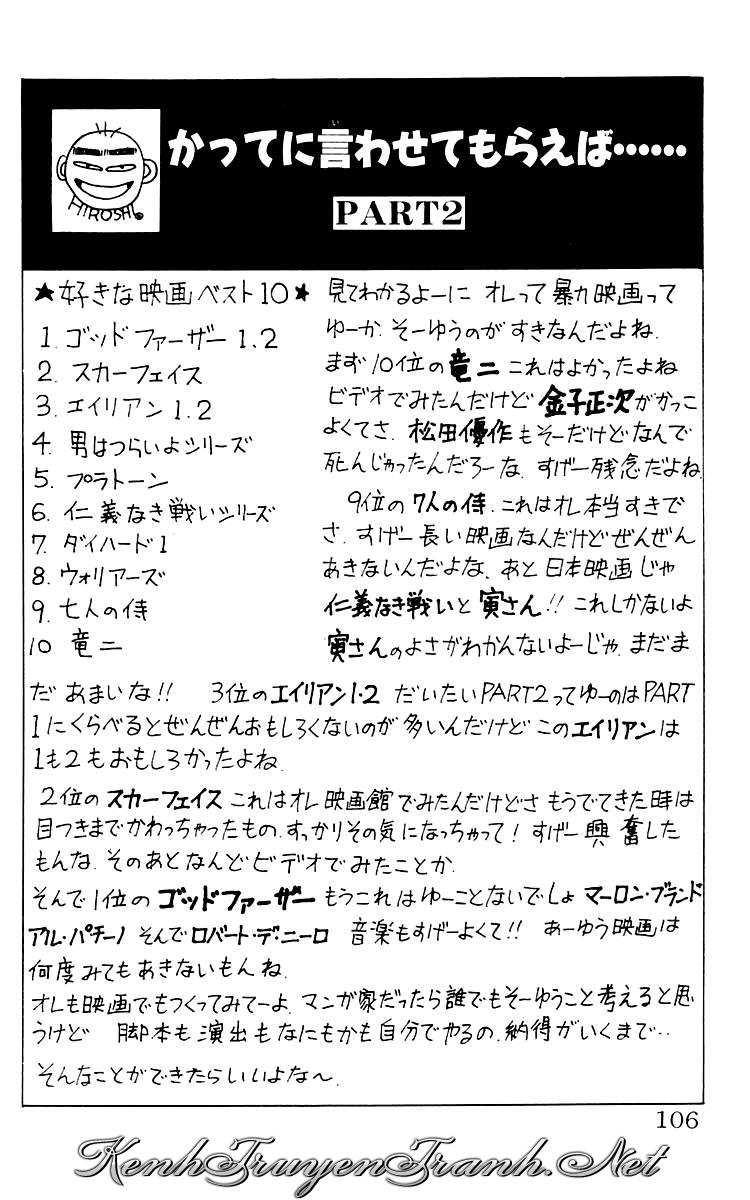 かってに言わせてもらえば……
PART2
HIROSHI
★好きな映画ベスト10★
1. ゴッドファーザー1、2
2. スカーフェイス
3. エイリアン1.2
4. 男はつらいよシリーズ
5. プラトーン
6. 仁義なき戦いシリーズ
7. ダイハード1
8. ウォリアーズ
9. 七人の侍
10 竜二
見てわかるよーに オレって暴力映画って
ゆーか そーゆうのがすきなんだよね.
まず10位の竜二 これはよかったよね
ビデオでみたんだけど 金子正次がかっこ
よくてさ、松田優作もそーだけどなんで
死んじゃったんだろーな、すげー残念だよね
9位の7人の侍、これはオレ本当すきで
さ、すげー長い映画なんだけどぜんぜん
あきないんだよな、あと日本映画じゃ
仁義なき戦いと寅さん!! これしかないよ
寅さんのよさがわかんないよーじゃ、まだま
だ あまいな!! 3位のエイリアン1・2 だいたいPART2ってゆーのはPART
1にくらべるとぜんぜんおもしろくないのが多いんだけど このエイリアンは
1も2もおもしろかったよね.
2位のスカーフェイス これはオレ映画館でみたんだけどさ もうでてきた時は
目つきまでかわっちゃったもの、すっかりその気になっちゃって! すげー興奮した
もんな、そのあとなんどビデオでみたことか.
そんで1位の ゴッドファーザー もうこれはゆーことないでしょ マーロン・ブランド
アル・パチーノ そんでロバート・デ・ニーロ 音楽もすげーよくて!! あーゆう映画は
何度みてもあきないもんね.
オレも映画でもつくってみてーよ、マンガ家だったら誰でもそーゆうこと考えると思
うけど 脚本も演出もなにもかも自分でやるの、納得がいくまで‥
そんなことができたらいいよな〜.
106
KenhTruyenTranh.Net